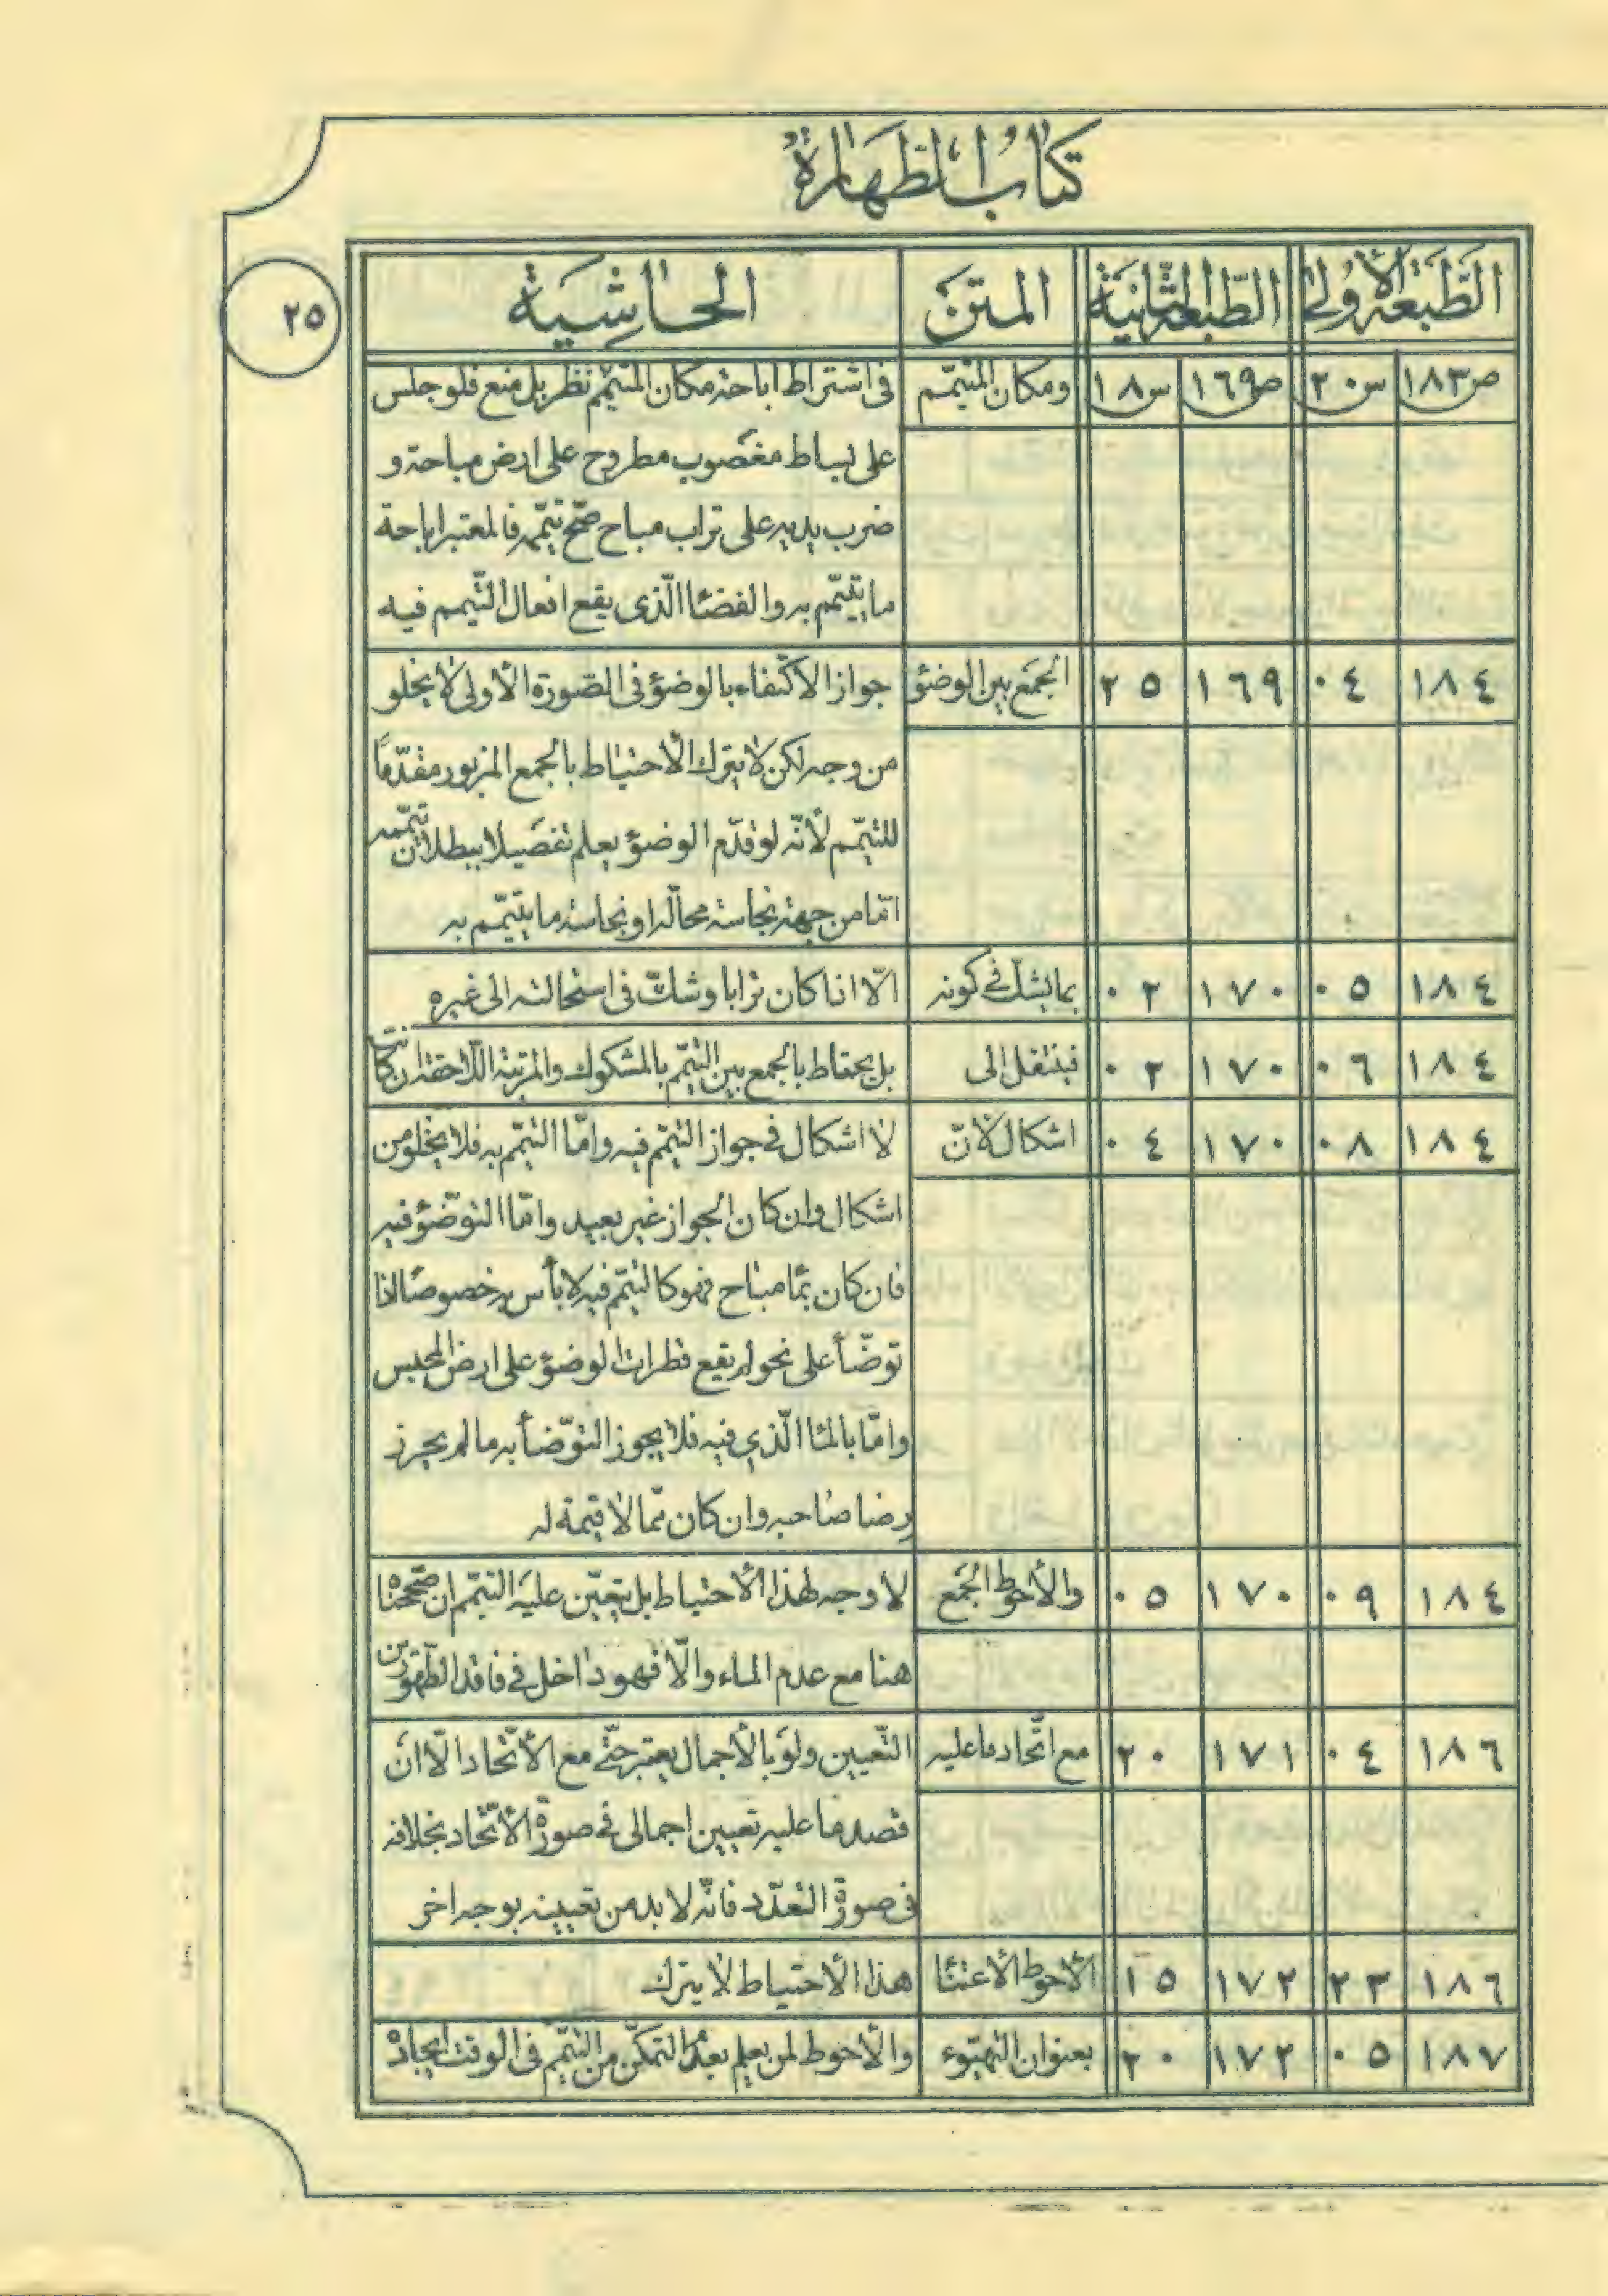 كتاب الطهارة
٢٥
الطّبعة الأولى الطّبعة الثّانية المتن الحاشية
ص١٨٣ س٢٠ ص١٦٩ س١٨ ومكان المتيمّم فى اشتراط اباحة مكان المتيمّم نظر بل منع فلو جلس
على بساط مغصوب مطروح على ارض مباحة و
ضرب يديه على تراب مباح صحّ تيمّمه فالمعتبر اباحة
ما يتيمّم به والفضا الّذى يقع افعال التّيمم فيه
١٨٤ ٠٤ ١٦٩ ٢٥ الجمع بين الوضؤ جواز الاكتفاء بالوضؤ فى الصّورة الأولى لا يخلو
من وجه لكن لا يترك الأحتياط بالجمع المزبور مقدّمًا
للتيمّم لأنّه لو قدّم الوضؤ يعلم تفصيلا ببطلان تيمّمه
امّا من جهة نجاسة محالّه او نجاسة ما يتيمّم به
١٨٤ ٠٥ ١٧٠ ٠٢ بما يشك في كونه الّا اذا كان ترابا وشكّ فى استحالته الى غيره
١٨٤ ٠٦ ١٧٠ ٠٢ فينتقل الى بل يحتاط بالجمع بين التيمّم بالمشكوك والمرتبة اللّاحقة ان كانت
١٨٤ ٠٨ ١٧٠ ٠٤ اشكال لأنّ لا اشكال في جواز التيمّم فيه وامّا التيمّم به فلا يخلو من
اشكال وان كان الجواز غير بعيد وامّا التوضّؤ فيه
فان كان بما مباح فهو كالتيمّم فيه لا بأس به خصوصًا اذا
توضّأ على نحو لم يقع قطرات الوضؤ على ارض المحبس
وامّا بالما الّذي فيه فلا يجوز التوّضأ به ما لم يحرز
رضا صاحبه وان كان ممّا لا قيمة له
١٨٤ ٠٩ ١٧٠ ٠٥ والأحوط الجمع لا وجه لهذا الأحتياط بل يتعيّن عليه التيمّم ان صحّحناه
هنا مع عدم الماء والّا فهو داخل في فاقد الطّهورين
١٨٦ ٠٤ ١٧١ ٢٠ مع اتّحاد ما عليه التّعيين ولو بالأجمال يعتبر حتّى مع الأتّحاد الّا انّ
قصد ما عليه تعيين اجمالى في صورة الأتّحاد بخلافه
فى صورة التعدّد فانّه لا بد من تعيينه بوجه اخر
١٨٦ ٢٣ ١٧٢ ١٥ الأحوط الأعتنا هذا الأحتياط لا يترك
١٨٧ ٠٥ ١٧٢ ٢٠ بعنوان التهيّوء والأحوط لمن يعلم بعدم التمكّن من التيمّم فى الوقت ايجاده